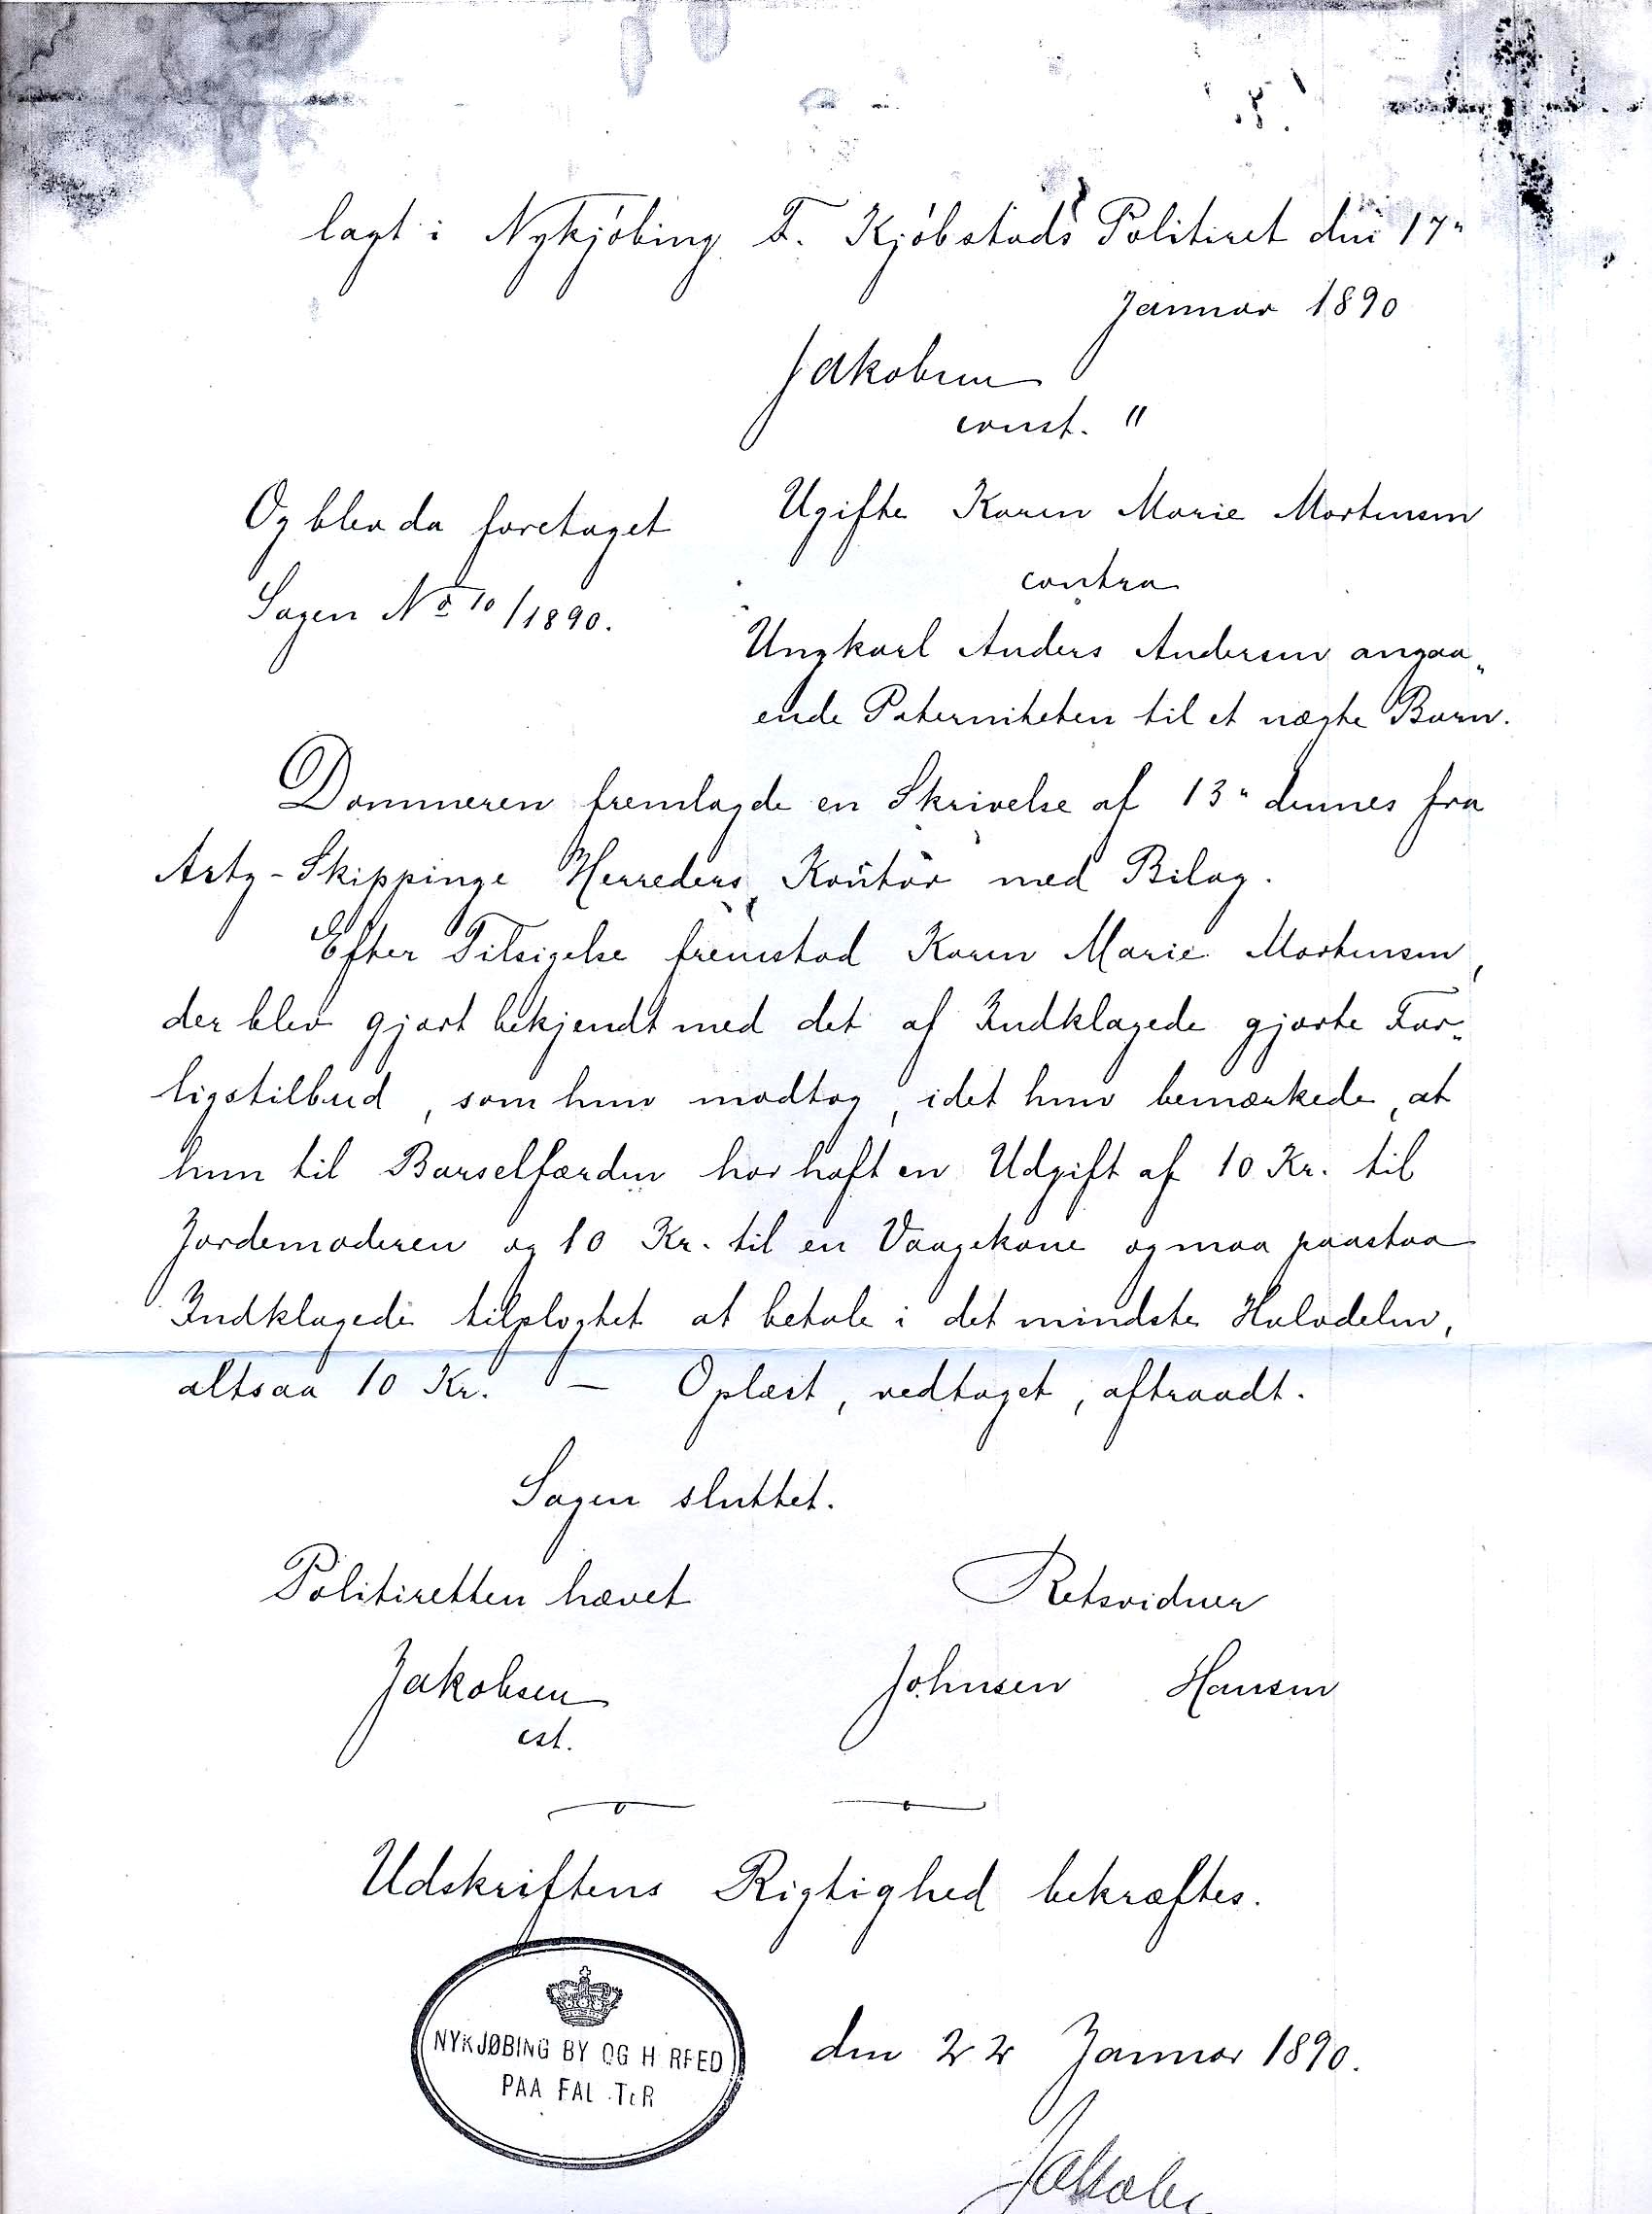 lagt i Nykjöbing F. Kjöbstads Politiret den 17"
Januar 1890
Jakobsen
const. "
Og blev da foretaget
Sagen No 10/1890.
Ugifte Karen Marie Mortensen
contra
Ungkarl Anders Andersen angaa„
ende Paterniteten til et uægte Barn.
Dommeren fremlagde en Skrivelse af 13" dennes fra
Arts-Skippinge Herreders Kontor med Bilag.
Efter Tilsigelse fremstod Karen Marie Mortensen,
der blev gjort bekjendt med det af Indklagede gjorte For„
ligstilbud, som hun modtog, idet hun bemærkede, at
hun til Barselfærden har haft en Udgift af 10 Kr. til
Jordemoderen og 10 Kr. til en Vaagekone og maa paastaa
Indklagede tilpligtet at betale i det mindste Halvdelen,
altsaa 10 Kr. — Oplæst, vedtaget, aftraadt.
Sagen sluttet.
Politiretten hævet
Jakobsen
cst.
Retsvidner
Johnsen Hansen
Udskriftens Rigtighed bekræftes.
NYKJØBING BY OG H RRED
PAA FAL TER
den 22 Januar 1890.
Jakobs